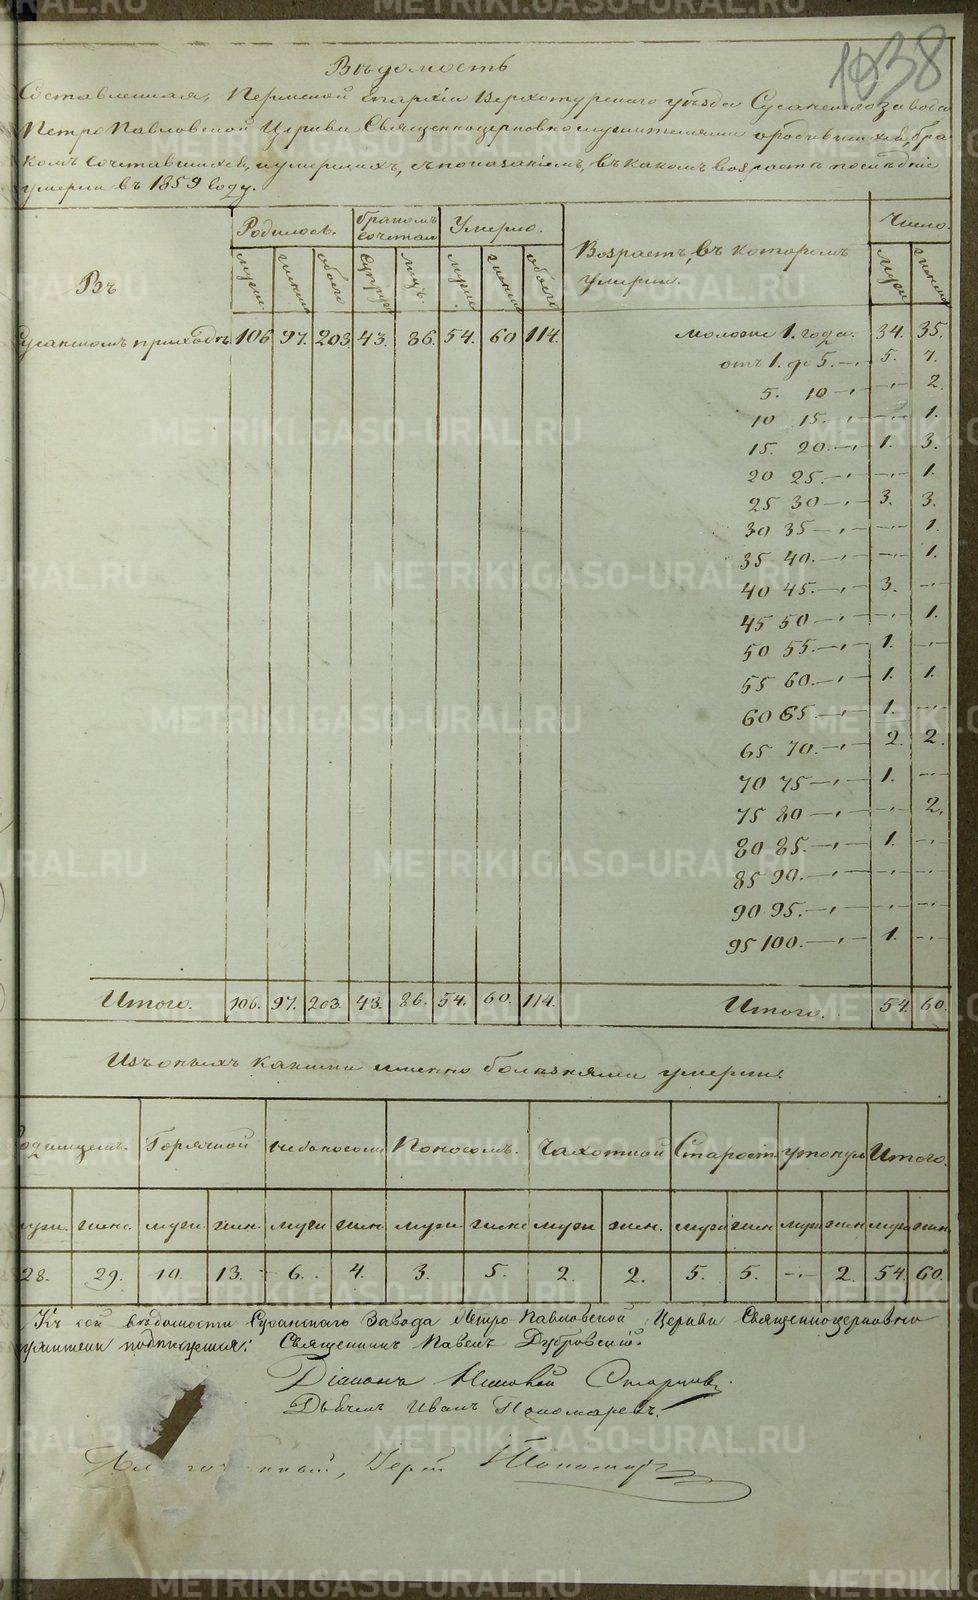 1038
Вѣдомость
Составленная, Пермской Епархіи Верхотурскаго уѣзда Сусанскаго завода
Петро Павловской Церкви Священноцерковнослужителями о родившихся, бра-
комъ сочетавшихся, и умершихъ, съ показаніемъ, въ какомъ возрастѣ послѣдніе
умерли въ 1859 году.
Въ Родилось. бракомъ сочетал Умерло. Возрастъ, въ которомъ умерли. Число
мужес женска обоего супруж лицъ. мужес женска обоего мужес женска
Сусанскомъ приходѣ 106 97. 203. 43. 86. 54. 60 114. моложе 1. года. 34. 35.
отъ 1. до 5. 5. 7.
5. 10 - 2.
10 15. - 1.
15. 20 1. 3.
20 25. - 1.
25 30 3. 3.
30 35 - 1.
35 40. - 1.
40 45. 3. -
45 50 - 1.
50 55. 1. -
55 60. 1. 1.
60 65. 1. -
65 70. 2. 2.
70 75 1. -
75 80 - 2.
80 85. 1. -
85 90. - -
90 95. - -
95 100. 1. -
Итого. 106. 97. 203. 43. 86. 54. 60. 114. Итого. 54. 60.
Изъ оныхъ какими именно болѣзнями умерли.
Родимцемъ. Горячкой Поносомъ. Чахоткой Старост. утонул Итого.
мужи. женс. мужи жен. мужи жен. мужи. женс мужи жен. мужи жен мужи жен мужи жен.
28. 29. 10. 13. 6. 4. 3. 5. 2. 2. 5. 5. - 2. 54. 60.
Къ сей вѣдомости Сусанскаго Завода Петро Павловской Церкви Священноцерковно
служители подписуемся: Священникъ Павелъ Дубровскій.
Діаконъ
Дьячекъ Иванъ Пономаревъ.
METRIKI.GASO-URAL.RU